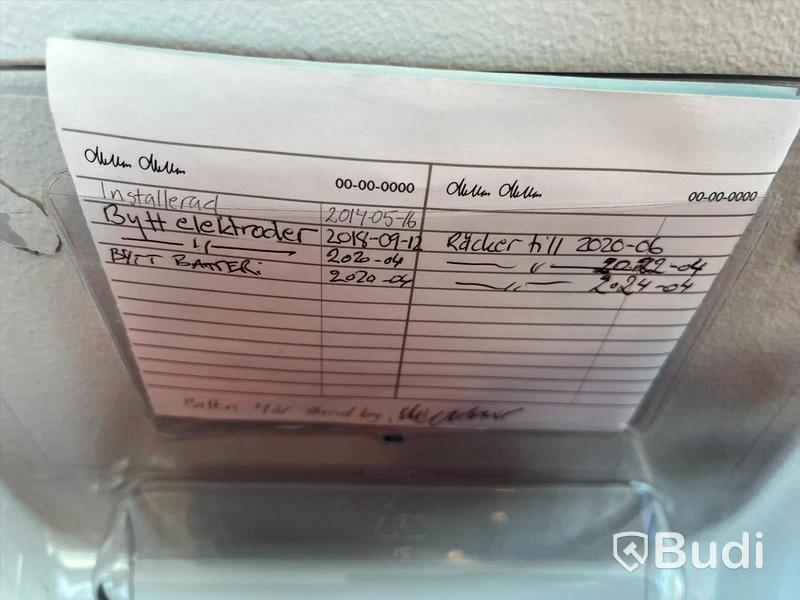 00-00-0000 00-00-0000
Installerad 2014-05-16
Bytt elektroder 2018-09-12 Räcker till 2020-06
— ıı — 2020-04 — ıı — 2022-04
BYTT BATTERI 2020-04 — ıı — 2024-04
Batteri 4 år stand by.
Budi